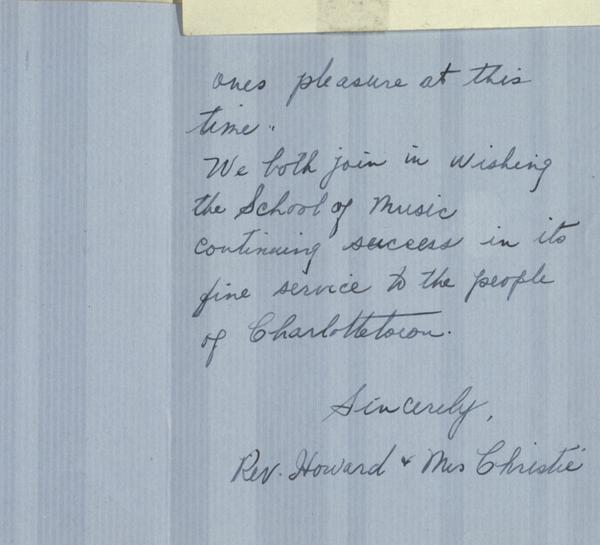 ones pleasure at this
time."
We both join in wishing
the School of Music
continuing success in its
fine service to the people
of Charlottetown.
Sincerely,
Rev. Howard & Mrs Christie